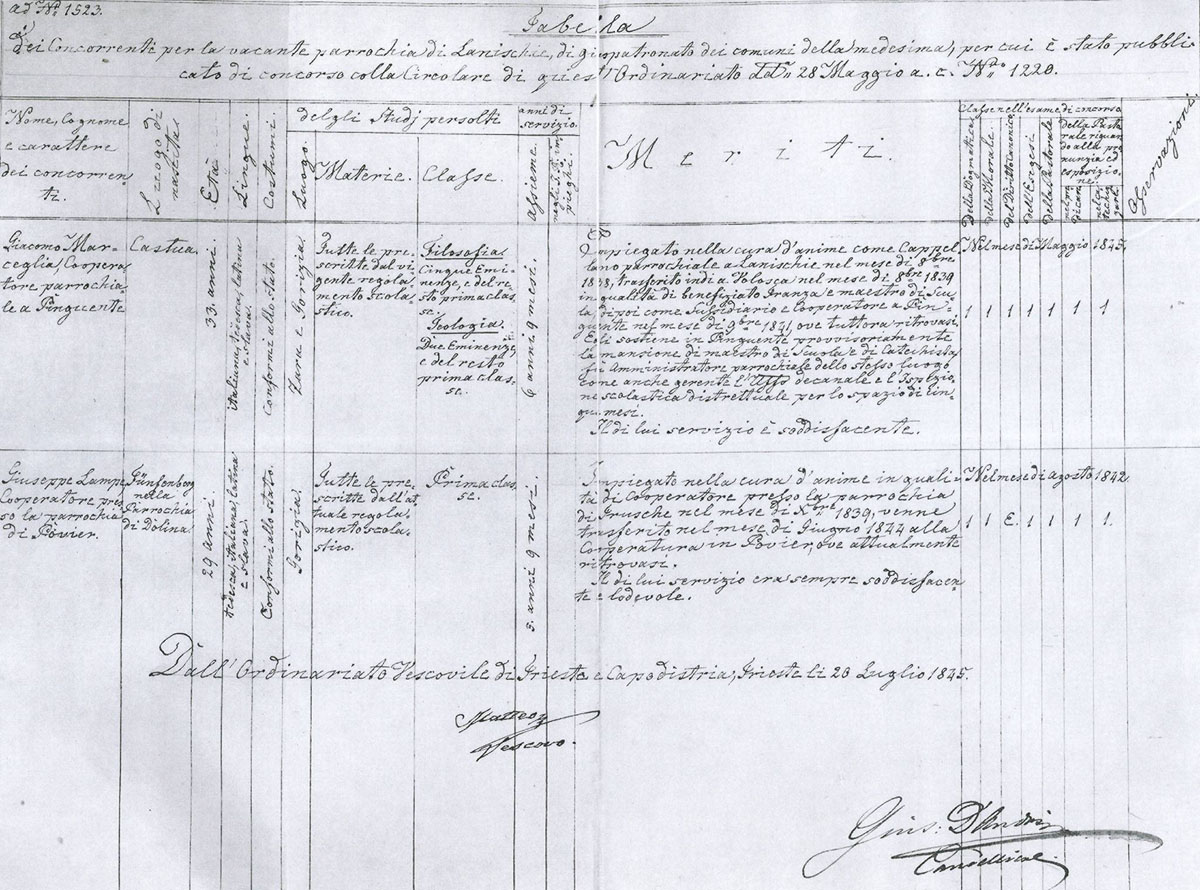 ad Nº 1523.
Tabella
dei Concorrenti per la vacante parrochia di Lanischie, di giuspatronato dei comuni della medesima, per cui è stato pubbli
cato di concorso colla Circolare di quest'Ordinariato ddº 28 Maggio a. c. Nº 1220.
Nome, Cognome
e carattere
dei concorren-
ti.
Luogo di
nascita
Età.
Lingue.
Costumi.
degli Studj persolti
Luogo.
Materie.
Classe.
anni di
servizio.
assieme.
negli
pieghi.
Meriti.
Classe nell'esame di concorso
della Dogmatica
della Morale.
del Diritto canonico
dell'Esegesi.
della Pastorale
della Pasto-
rale riguar-
do alla pro-
nunzia ed
esposizio-
ne.
nel pre-
dicare
nel ca-
techiz-
zare
Osservazioni.
Giacomo Mar-
ceglia, Coopera-
tore parrochia-
le a Pinguente
Castua.
33 anni.
italiana, tedesca, latina
e slava.
Conformi allo stato.
Zara e Gorizia.
Tutte le pre-
scritte dal vi-
gente regola-
mento scola-
stico.
Filosofia
Cinque Emi-
nenze, e del re-
sto prima clas-
se.
Teologia.
Due Eminenze,
e del resto
prima clas-
se.
6 anni 9 mesi.
Impiegato nella cura d'anime come Cappel-
lano parrochiale a Lanischie nel mese di 8bre
1838, trasferito indi a Volosca nel mese di 8bre 1839
in qualità di benefiziato Granza e maestro di Scuo-
la, di poi come Sussidiario e Cooperatore a Pin-
guente nel mese di 9bre 1841, ove tuttora ritrovasi.
Egli sostiene in Pinguente provvisoriamente
la mansione di maestro di Scuola e di Catechista,
fu Amministratore parrochiale dello stesso luogo
come anche gerente l'Uffº decanale e l'Ispezio-
ne scolastica distrettuale per lo spazio di cin-
que mesi.
Il di lui servizio è soddisfacente.
Nel mese di Maggio 1845.
1 1 1 1 1 1 1
Giuseppe Lampe
Cooperatore pres-
so la parrochia
di Povier.
Fünfenberg
nella
Parrochia
di Dolina.
29 anni.
tedesca, italiana, latina
e slava.
Conformi allo stato.
Gorizia.
Tutte le pre-
scritte dall'at-
tuale regola-
mento scola-
stico.
Prima clas-
se.
5. anni 9 mesi.
Impiegato nella cura d'anime in quali-
tà di Cooperatore presso la parrochia
di Brusche nel mese di Xbre 1839, venne
trasferito nel mese di Giugno 1844 alla
Cooperatura in Povier, ove attualmente
ritrovasi.
Il di lui servizio era sempre soddisfacen-
te e lodevole.
Nel mese di agosto 1842.
1 1 E. 1 1 1 1.
Dall'Ordinariato Vescovile di Trieste e Capodistria, Trieste li 20 Luglio 1845.
Matteo
Vescovo.
Gius: D'Andri
Cancelliere